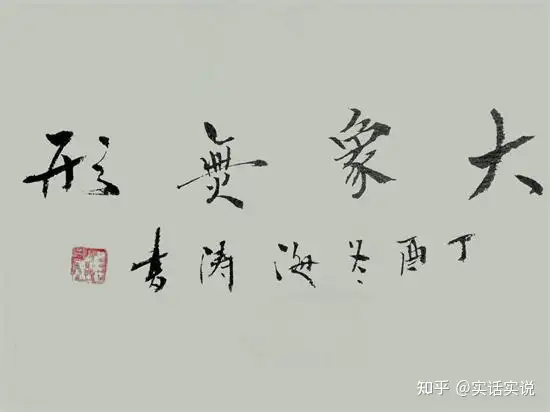 大象無形
丁酉冬海涛书
知乎 @实话实说